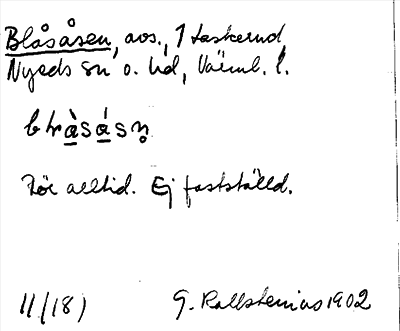 Blåsåsen, avs., 1 taskernd
Nyeds sn o. hd, Värml. l.
blràsásn̥
För alltid. Ej fastställd.
11/(18) G. Kallstenius 1902